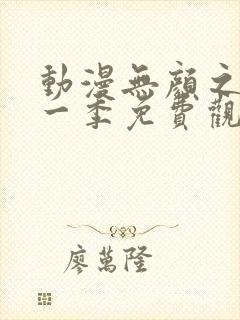 動漫無顏之
一季免費觀
廖萬隆